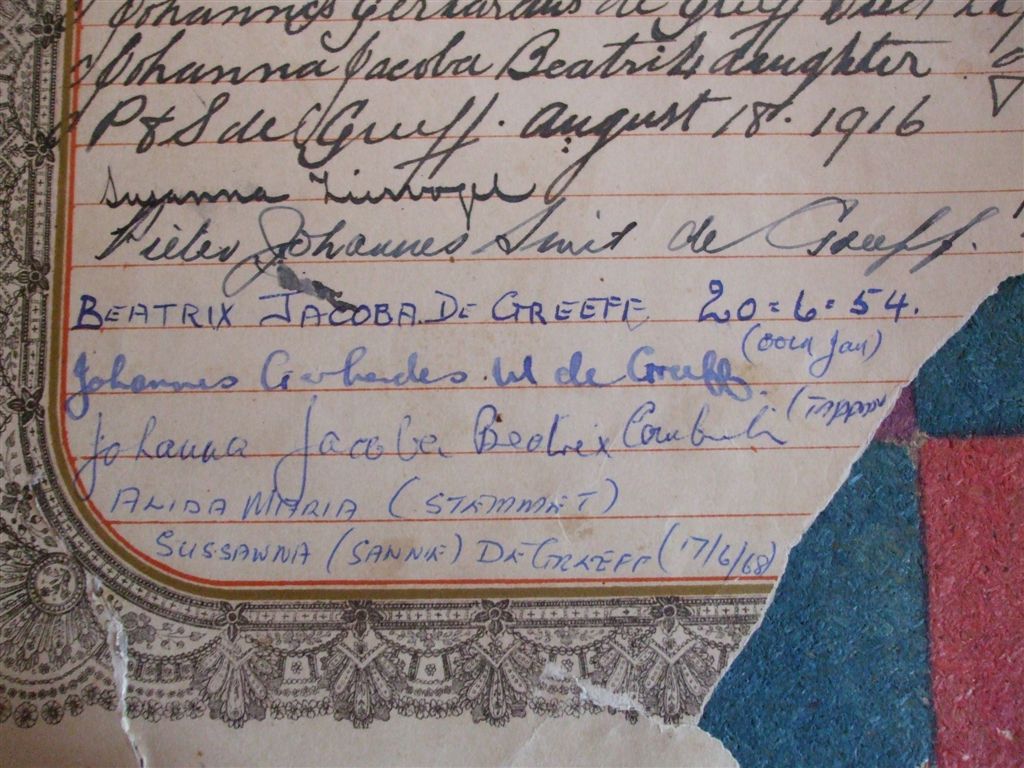 Johannes Gerhardus de Greeff Died
Johanna Jacoba Beatrik daughter
P & S de Greeff. August 18. 1916
Susanna Ziervogel
Pieter Johannes Smit de Greeff.
BEATRIX JACOBA. DE GREEFF 20=6=54.
(Oom Jan)
Johannes Gerhardes. W de Greeff.
Johanna Jacoba Beatrix
ALIDA MARIA (STEMMET)
SUSSANNA (SANNIE) DE GREEFF (17/6/68)